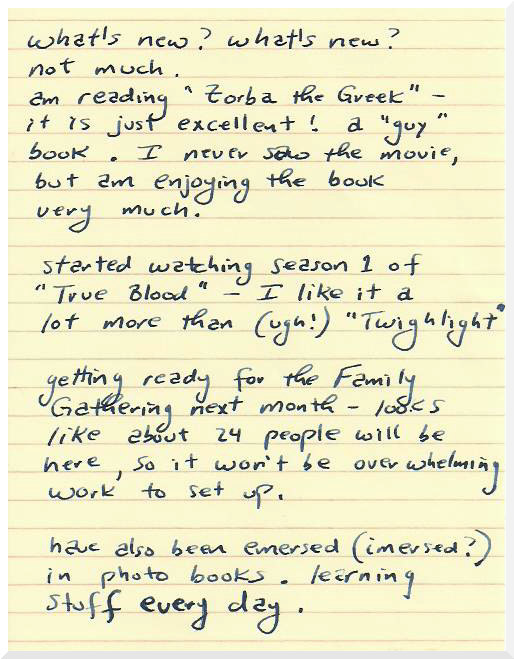 what's new? what's new?
not much.
am reading "Zorba the Greek" –
it is just excellent! a "guy"
book. I never saw the movie,
but am enjoying the book
very much.
started watching season 1 of
"True Blood" – I like it a
lot more than (ugh!) "Twighlight"
getting ready for the Family
Gathering next month – looks
like about 24 people will be
here, so it won't be overwhelming
work to set up.
have also been emersed (imersed?)
in photo books. learning
stuff every day.